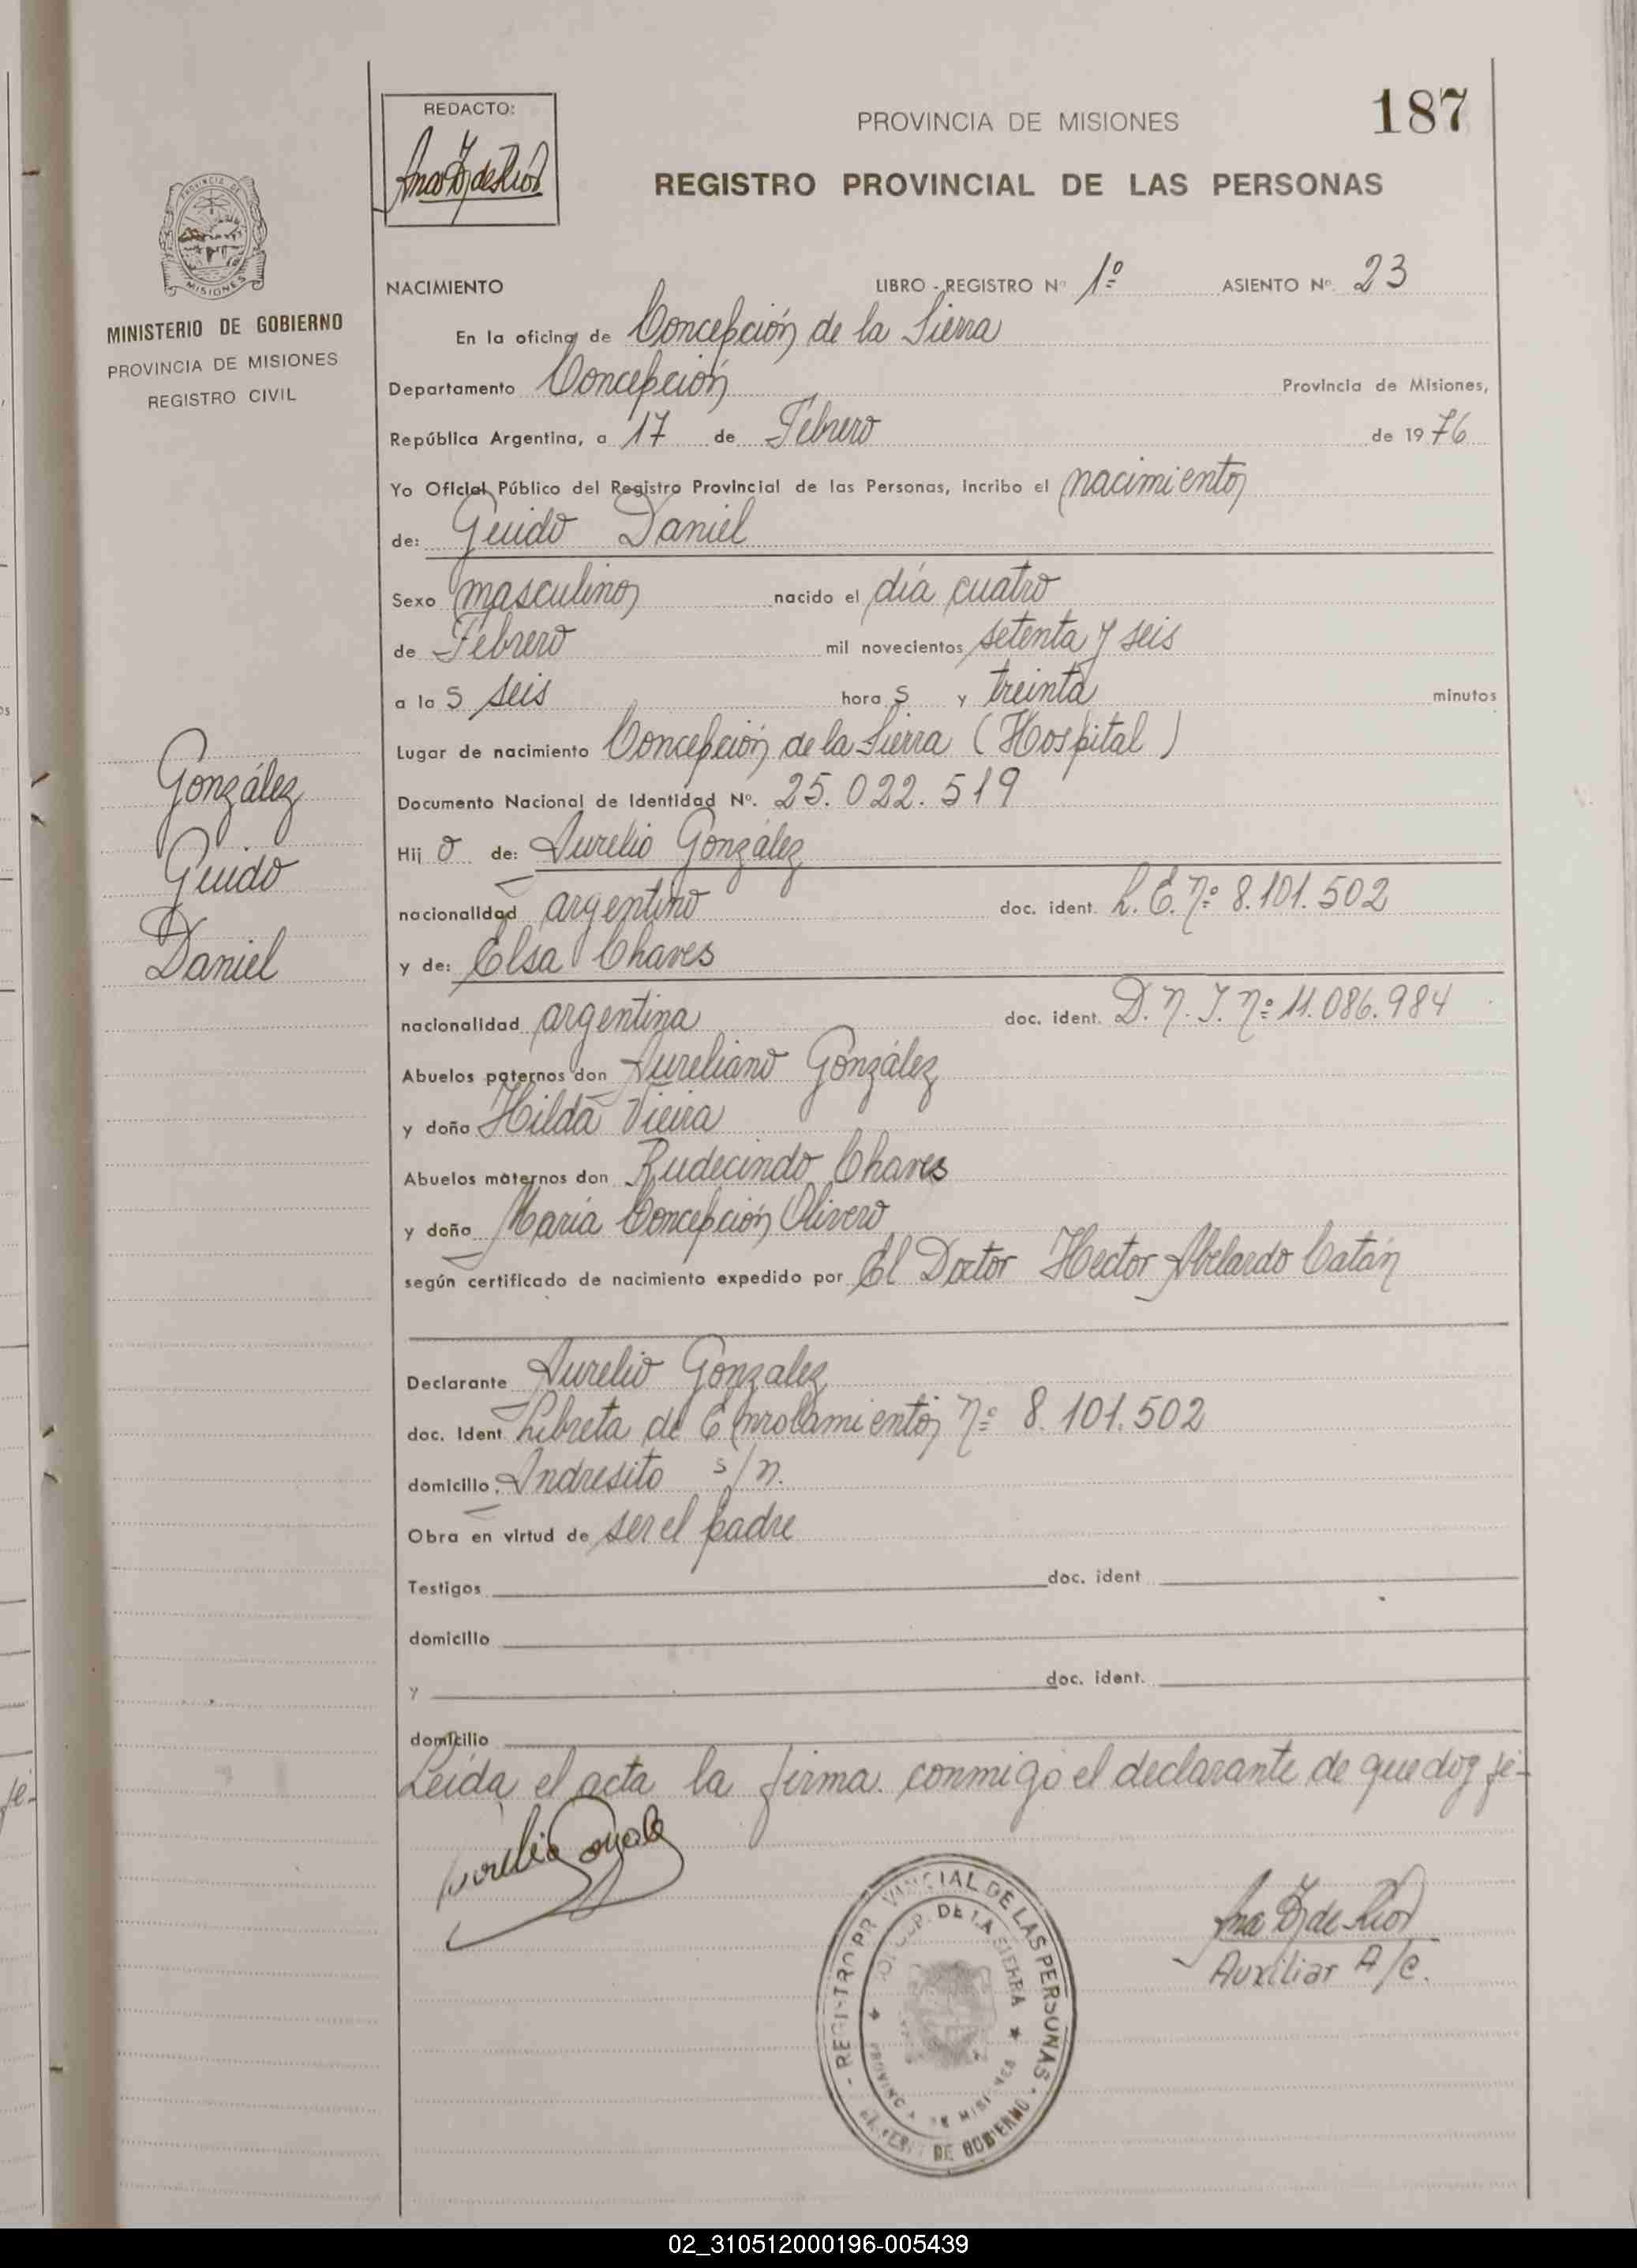 REDACTO:
PROVINCIA DE MISIONES
187
REGISTRO PROVINCIAL DE LAS PERSONAS
PROVINCIA DE
MISIONES
MINISTERIO DE GOBIERNO
PROVINCIA DE MISIONES
REGISTRO CIVIL
NACIMIENTO LIBRO - REGISTRO Nº 1º ASIENTO Nº. 23
En la oficina de Concepción de la Sierra
Departamento Concepción Provincia de Misiones,
República Argentina, a 17 de Febrero de 1976
Yo Oficial Público del Registro Provincial de las Personas, incribo el nacimiento
de: Guido Daniel
Sexo masculino nacido el día cuatro
de Febrero mil novecientos setenta y seis
a la s seis hora s y treinta minutos
Lugar de nacimiento Concepción de la Sierra (Hospital)
Documento Nacional de Identidad Nº. 25.022.519
Hij o de: Aurelio González
nacionalidad argentino doc. ident. L.E. nº 8.101.502
y de: Elsa Chaves
nacionalidad argentina doc. ident. D.N.I. nº 11.086.984
Abuelos paternos don Aureliano González
y doña Hilda Vieira
Abuelos maternos don Rudecindo Chaves
y doña María Concepción Olivero
según certificado de nacimiento expedido por El Doctor Hector Abelardo Catán
González
Guido
Daniel
Declarante Aurelio Gonzalez
doc. Ident Libreta de Enrolamiento nº 8.101.502
domicilio: Andresito s/n.
Obra en virtud de ser el padre
Testigos doc. ident
domicilio
y doc. ident.
domicilio
Leída el acta la firma conmigo el declarante de que doy fé-
Ana Z de Rios
Auxiliar A/C.
DE LAS PERSONAS
DE LA SIERRA
DE GOBIERNO
02_310512000196-005439